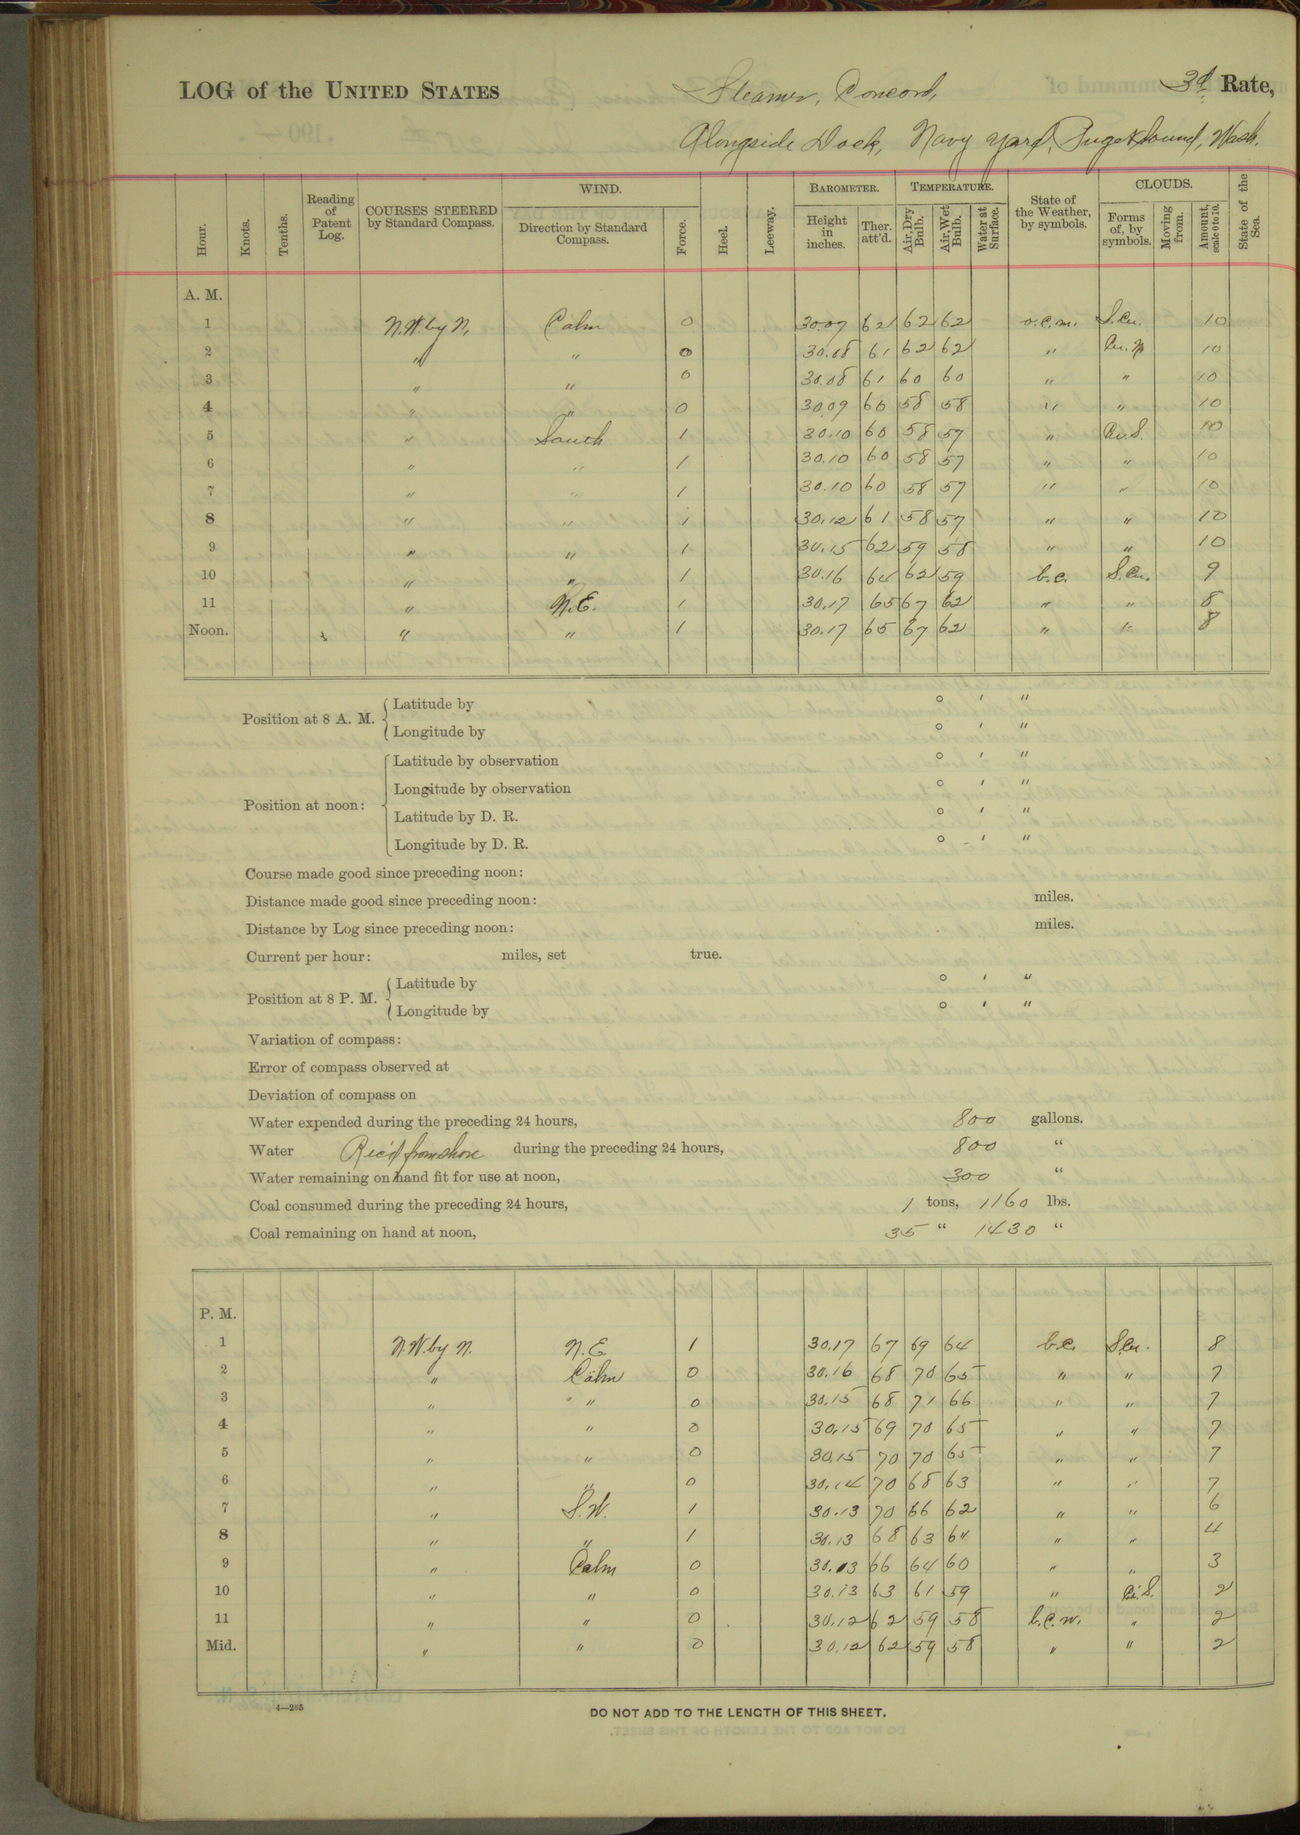 LOG of the UNITED STATES Steamer, Concord, 3d Rate,
Alongside Dock, Navy Yard, Puget Sound, Wash.
Hour. Knots. Tenths. Reading of Patent Log. COURSES STEERED by Standard Compass. WIND. Direction by Standard Compass. Force. Heel. Leeway. BAROMETER. Height in inches. Ther. att'd. TEMPERATURE. Air, Dry Bulb. Air, Wet Bulb. Water at Surface. State of the Weather, by symbols. CLOUDS. Forms of, by symbols. Moving from. Amount, scale 0 to 10. State of the Sea.
A. M.
1 N.W. by N. Calm 0 30.07 62 62 62 o.c.m. S.Cu. 10
2 " " 0 30.08 61 62 62 " Cu. N 10
3 " " 0 30.08 61 60 60 " " 10
4 " " 0 30.09 60 58 58 " " 10
5 " South 1 30.10 60 58 57 " Cu. S. 10
6 " " 1 30.10 60 58 57 " " 10
7 " " 1 30.10 60 58 57 " " 10
8 " " 1 30.12 61 58 57 " " 10
9 " " 1 30.15 62 59 58 " " 10
10 " " 1 30.16 64 62 59 b.c. S.Cu. 9
11 " N.E. 1 30.17 65 67 62 " " 8
Noon. " " 1 30.17 65 67 62 " " 8
Position at 8 A. M. Latitude by ° ' "
Longitude by ° ' "
Position at noon: Latitude by observation ° ' "
Longitude by observation ° ' "
Latitude by D. R. ° ' "
Longitude by D. R. ° ' "
Course made good since preceding noon:
Distance made good since preceding noon: miles.
Distance by Log since preceding noon: miles.
Current per hour: miles, set true.
Position at 8 P. M. Latitude by ° ' "
Longitude by ° ' "
Variation of compass:
Error of compass observed at
Deviation of compass on
Water expended during the preceding 24 hours, 800 gallons.
Water Rec'd from shore during the preceding 24 hours, 800 "
Water remaining on hand fit for use at noon, 300 "
Coal consumed during the preceding 24 hours, 1 tons, 1160 lbs.
Coal remaining on hand at noon, 35 " 1430 "
P. M.
1 N.W. by N. N.E. 1 30.17 67 69 64 b.c. S.Cu. 8
2 " Calm 0 30.16 68 70 65 " " 7
3 " " 0 30.15 68 71 66 " " 7
4 " " 0 30.15 69 70 65 " " 7
5 " " 0 30.15 70 70 65 " " 7
6 " " 0 30.14 70 68 63 " " 7
7 " S.W. 1 30.13 70 66 62 " " 6
8 " " 1 30.13 68 63 " " 4
9 " Calm 0 30.13 66 64 60 " " 3
10 " " 0 30.13 63 61 59 " Ci. S. 2
11 " " 0 30.12 62 59 58 b.c.w. " 2
Mid. " " 0 30.12 62 59 58 " " 2
4—265
DO NOT ADD TO THE LENGTH OF THIS SHEET.